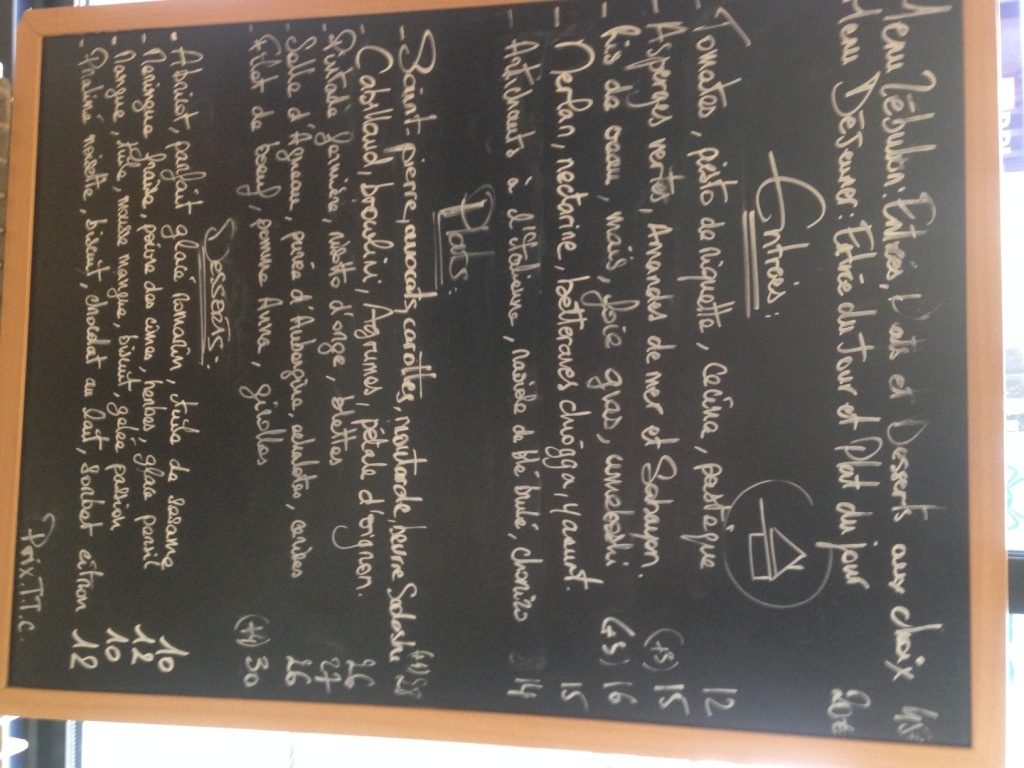 Menu Zébulon: Entrées, Plats et Desserts aux choix 45€
Menu Déjeuner: Entrée du Jour et Plat du jour 20€
Entrées:
- Tomates, pesto de riquette, cecina, pastèque 12
- Asperges vertes, Amandes de mer et Sabayon. (+3) 15
- Ris de veau, maïs, foie gras, umeboshi (+5) 16
- Merlan, nectarine, betteraves chiogga, yaourt. 15
- Artichauts à l'Italienne, raviole de blé brulé, chorizo 14
Plats:
- Saint-pierre, avocats, carottes, moutarde, beurre (+4) 28
- Cabillaud, brocolini, Agrumes, pétale d'oignon. 26
- Pintade fermière, risotto d'orge, blettes 27
- Selle d'Agneau, purée d'Aubergine, échalotes, cerises 26
- Filet de boeuf, pomme Anna, girolles (+4) 30
Desserts:
- Abricot, parfait glacé romarin, tuile de sésame 10
- Meringue, fraise, poivre des cimes, herbes, glace persil 12
- Mangue, mousse mangue, biscuit, gelée passion 10
- Praliné noisette, biscuit, chocolat au lait, sorbet citron 12
Prix T.T.C.